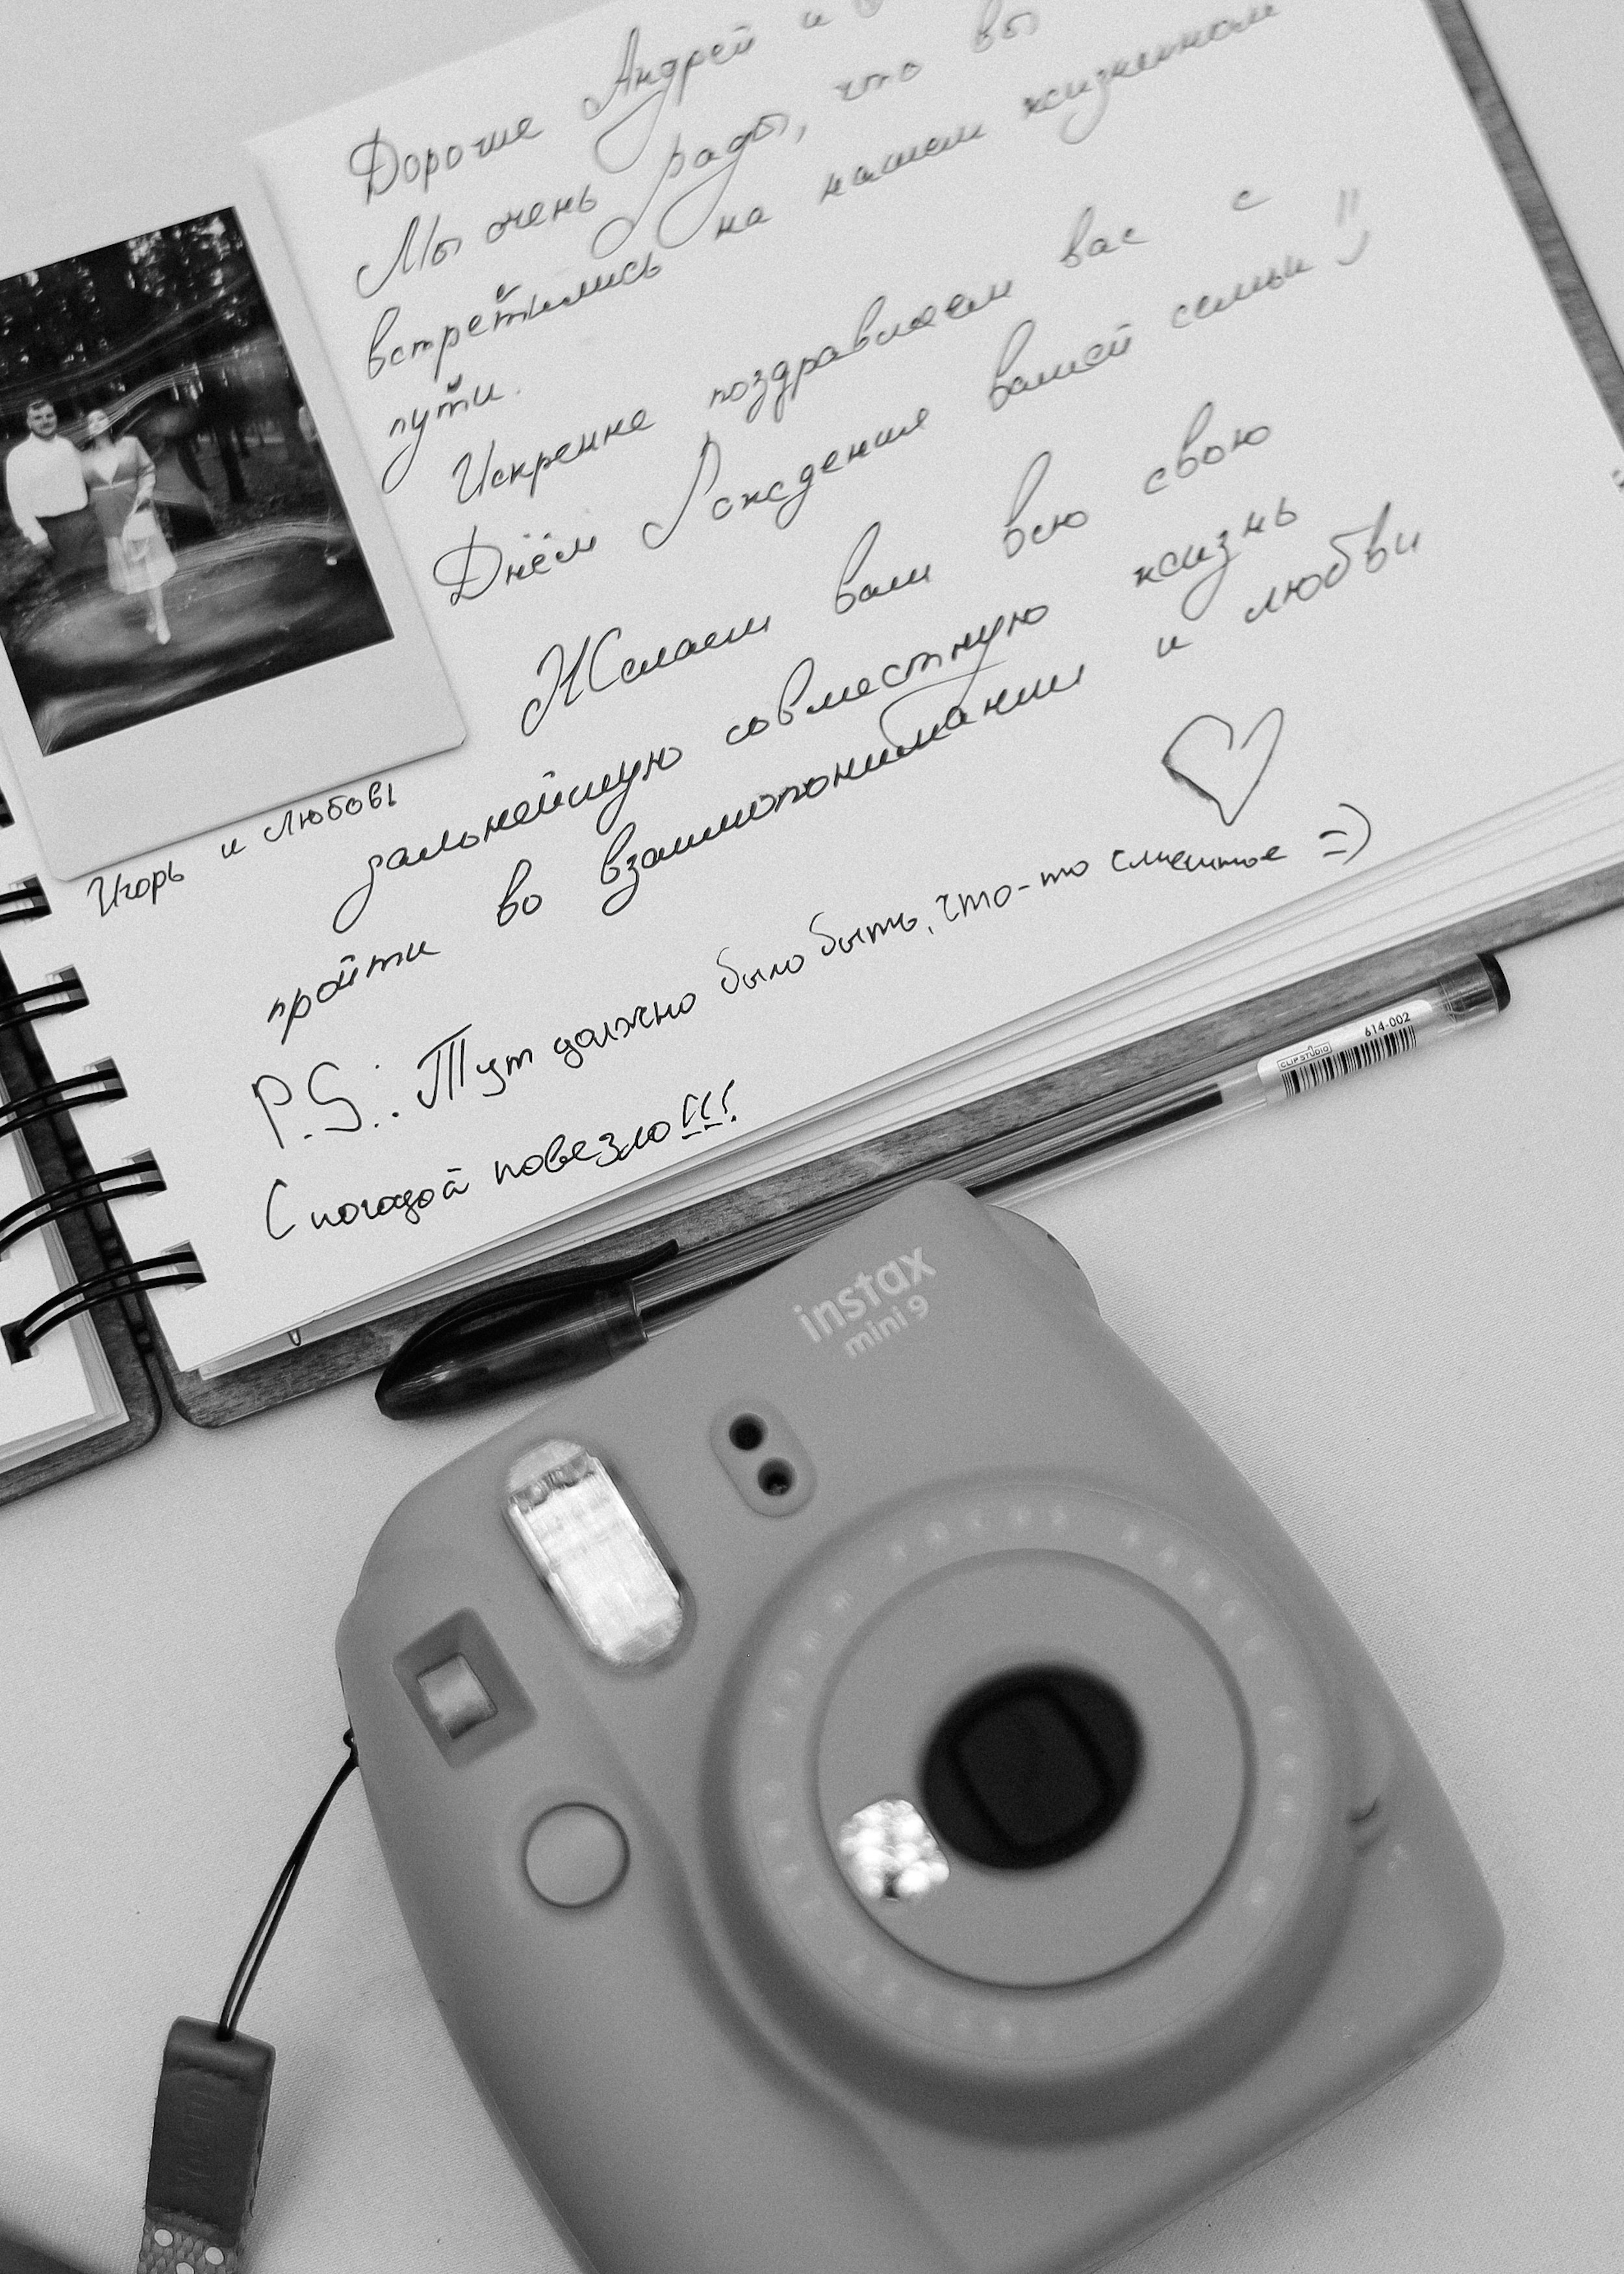 Дорогие Андрей и
Мы очень рады, что вы
встретились на нашем жизненном
пути.
Искренне поздравляем вас с
Днём Рождения вашей семьи !!
Желаем вам всю свою
дальнейшую совместную жизнь
пройти во взаимопонимании и любви
Игорь и Любовь
P.S.: Тут должно было быть, что-то смешное =)
С погодой повезло!!!
CLIPSTUDIO 614-002
instax
mini 9